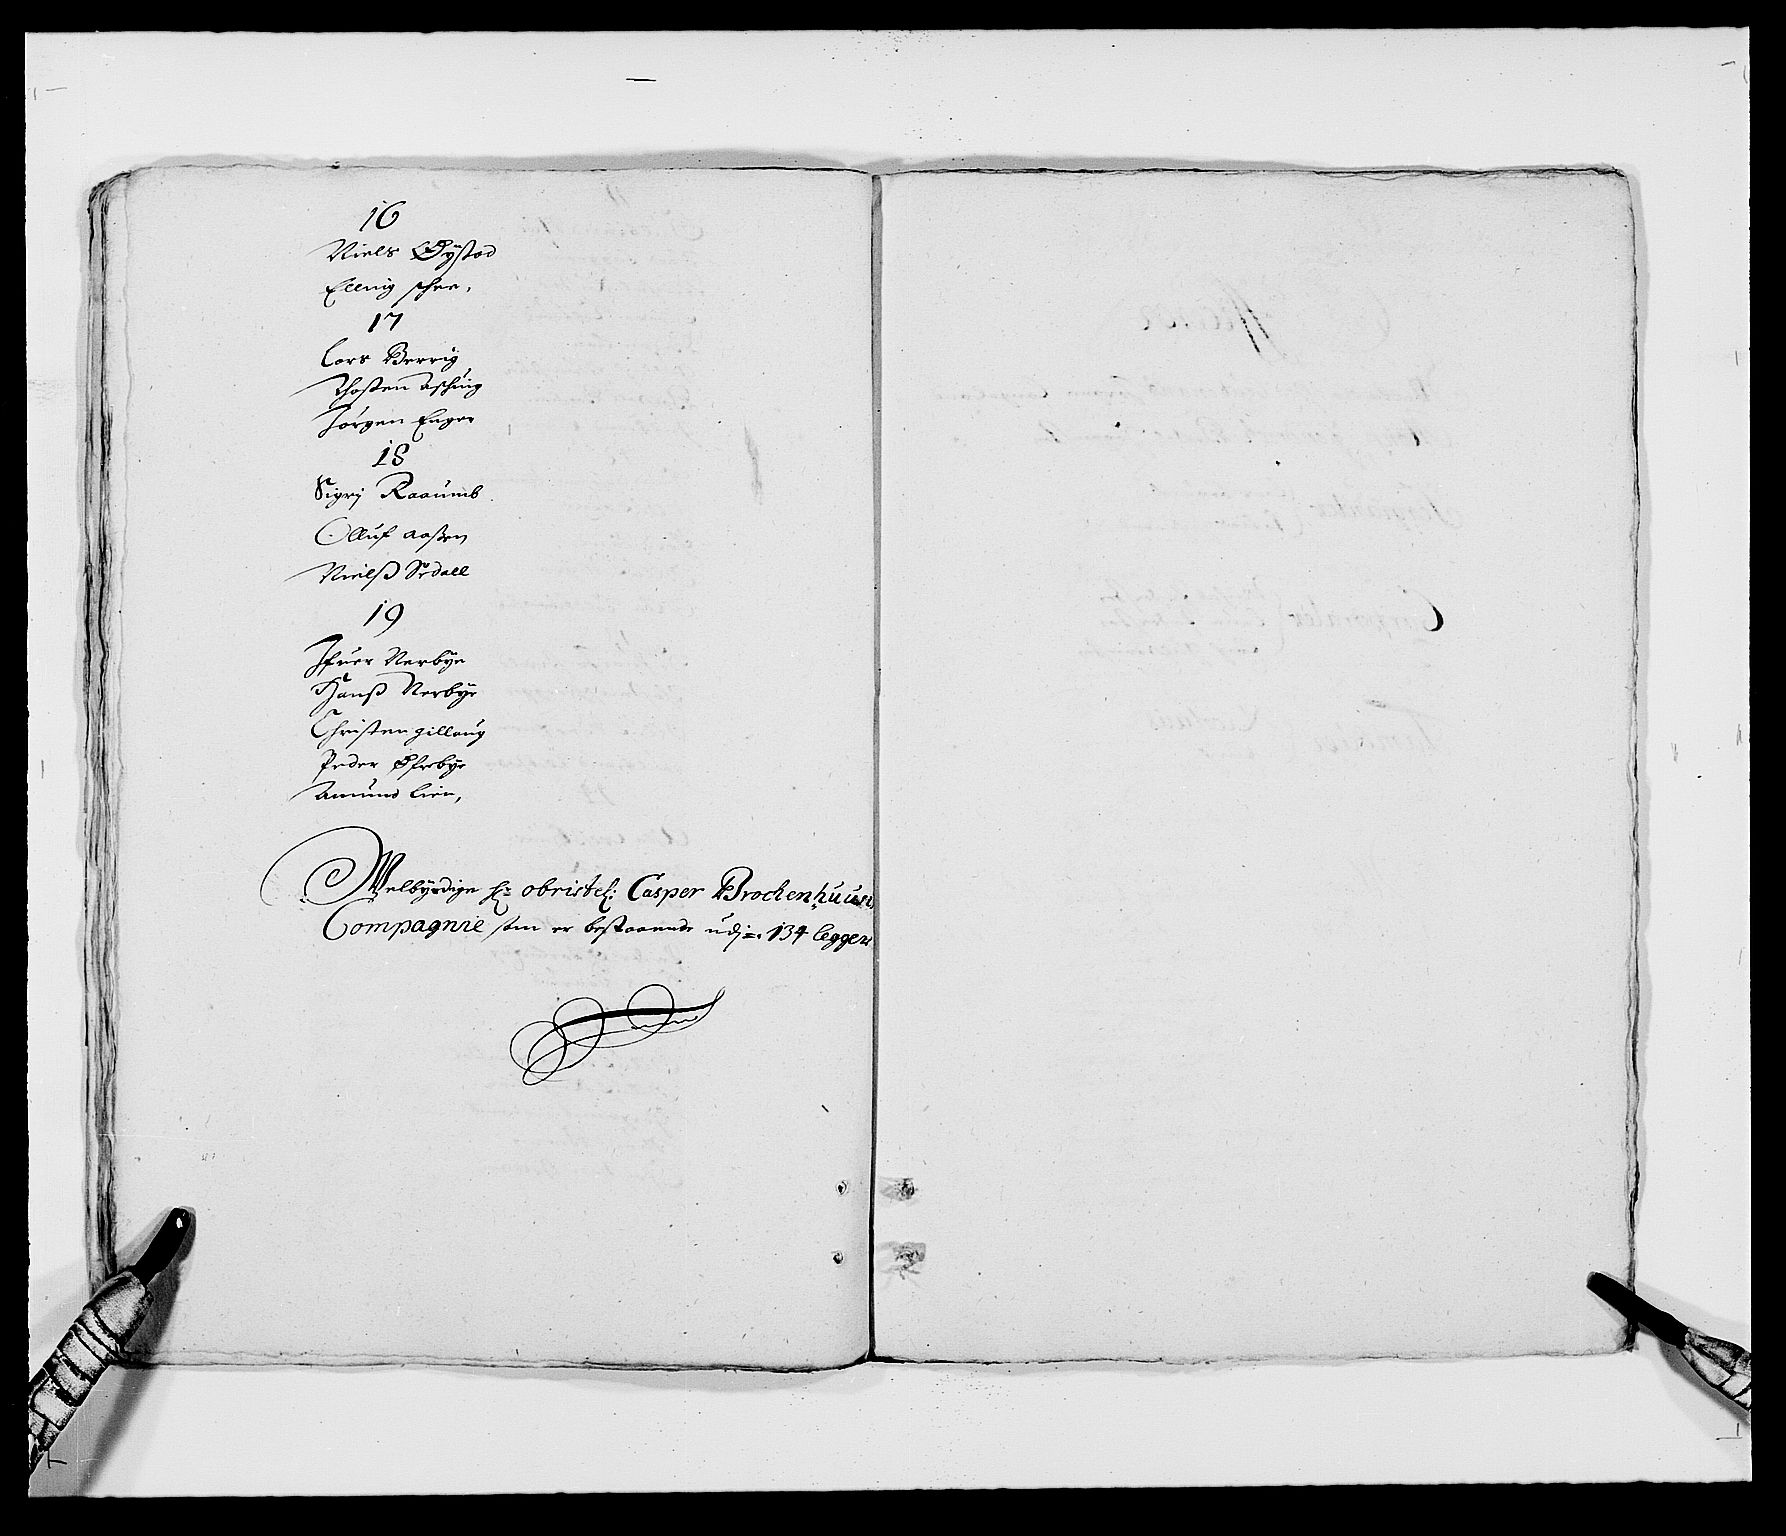 16
Niels Øÿstad
Elling schee,
17
Lars Berrig
Thosten Aschuig
Jørgen Enger
18
Sigrj Raaumb
Olluf aaßen
Nielß Ardall
19
Jfuer Nerbÿe
Hanß Nerbÿe
Christen gillaug
Peder Øfrebÿe
Amund lien,
Welbÿrdige Hr: obristel: Casper Brochenhuuses
Compagnie som er bestaaende udj 134 legger